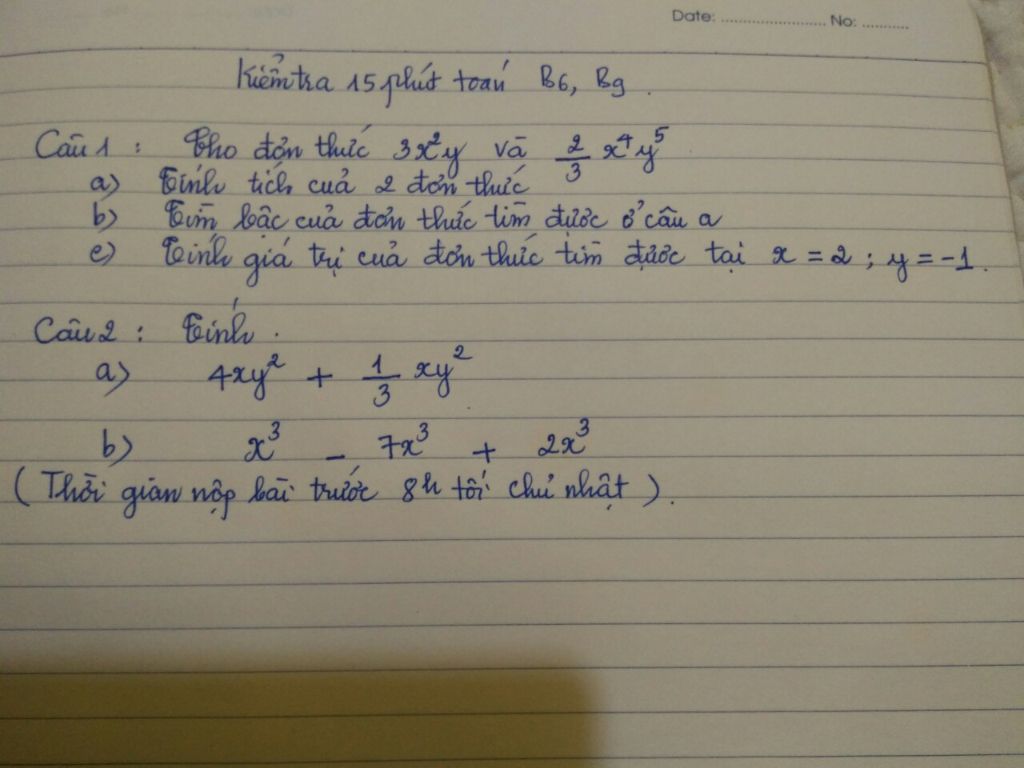 Date: ........................ No: ...........
Kiểm tra 15 phút toán B6, B9.
Câu 1 : Cho đơn thức 3x²y và 2/3 x⁴y⁵
a) Tính tích của 2 đơn thức
b) Tìm bậc của đơn thức tìm được ở câu a
c) Tính giá trị của đơn thức tìm được tại x = 2 ; y = -1.
Câu 2 : Tính.
a) 4xy² + 1/3 xy²
b) x³ - 7x³ + 2x³
( Thời gian nộp bài trước 8h tối chủ nhật ).